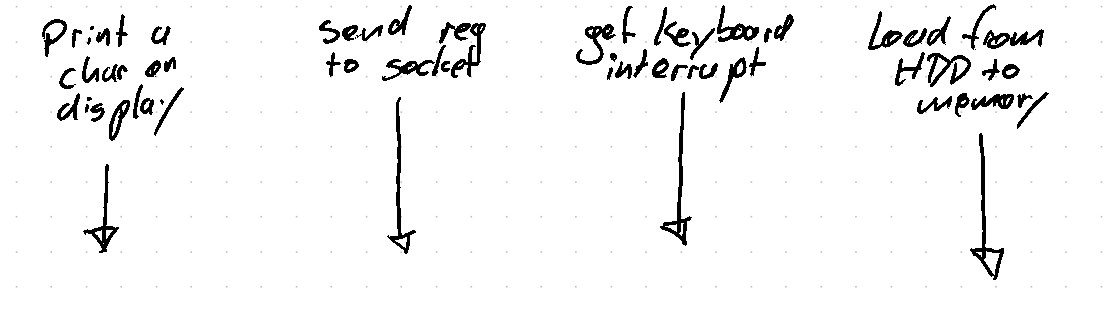 Print a
char on
display
send req
to socket
get keyboard
interrupt
Load from
HDD to
memory